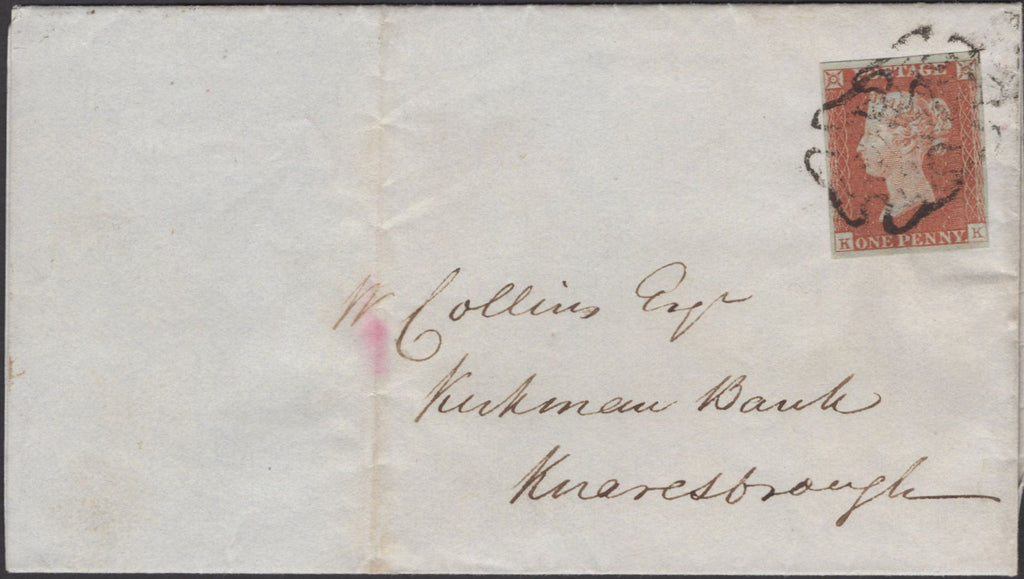 POSTAGE
K ONE PENNY K
W Collins Esqr
Kirkman Bank
Knaresbrough